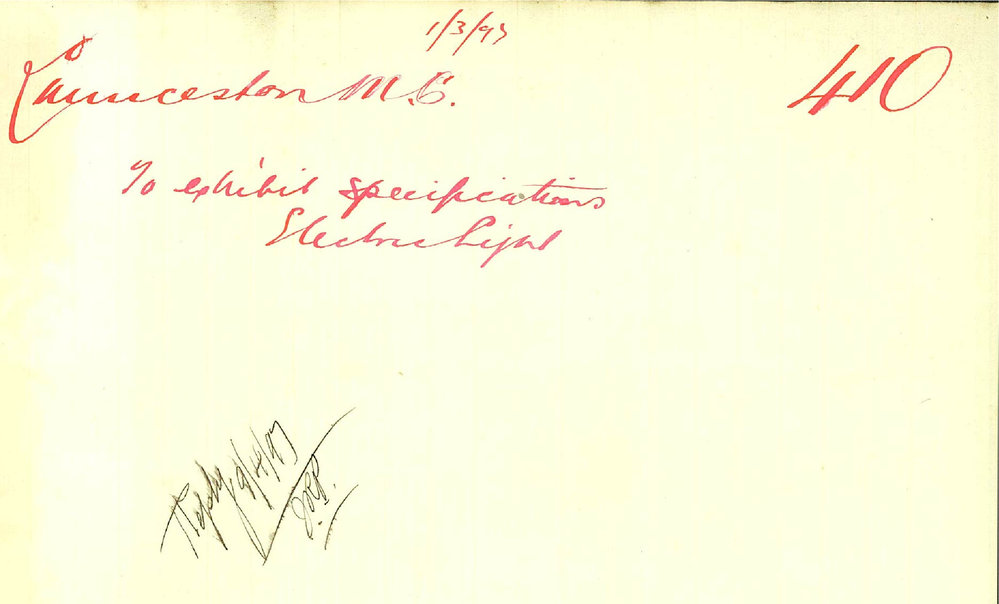 1/3/97
Launceston M.C. 410
To exhibit specifications
Electric Light
Reply 9/4/97